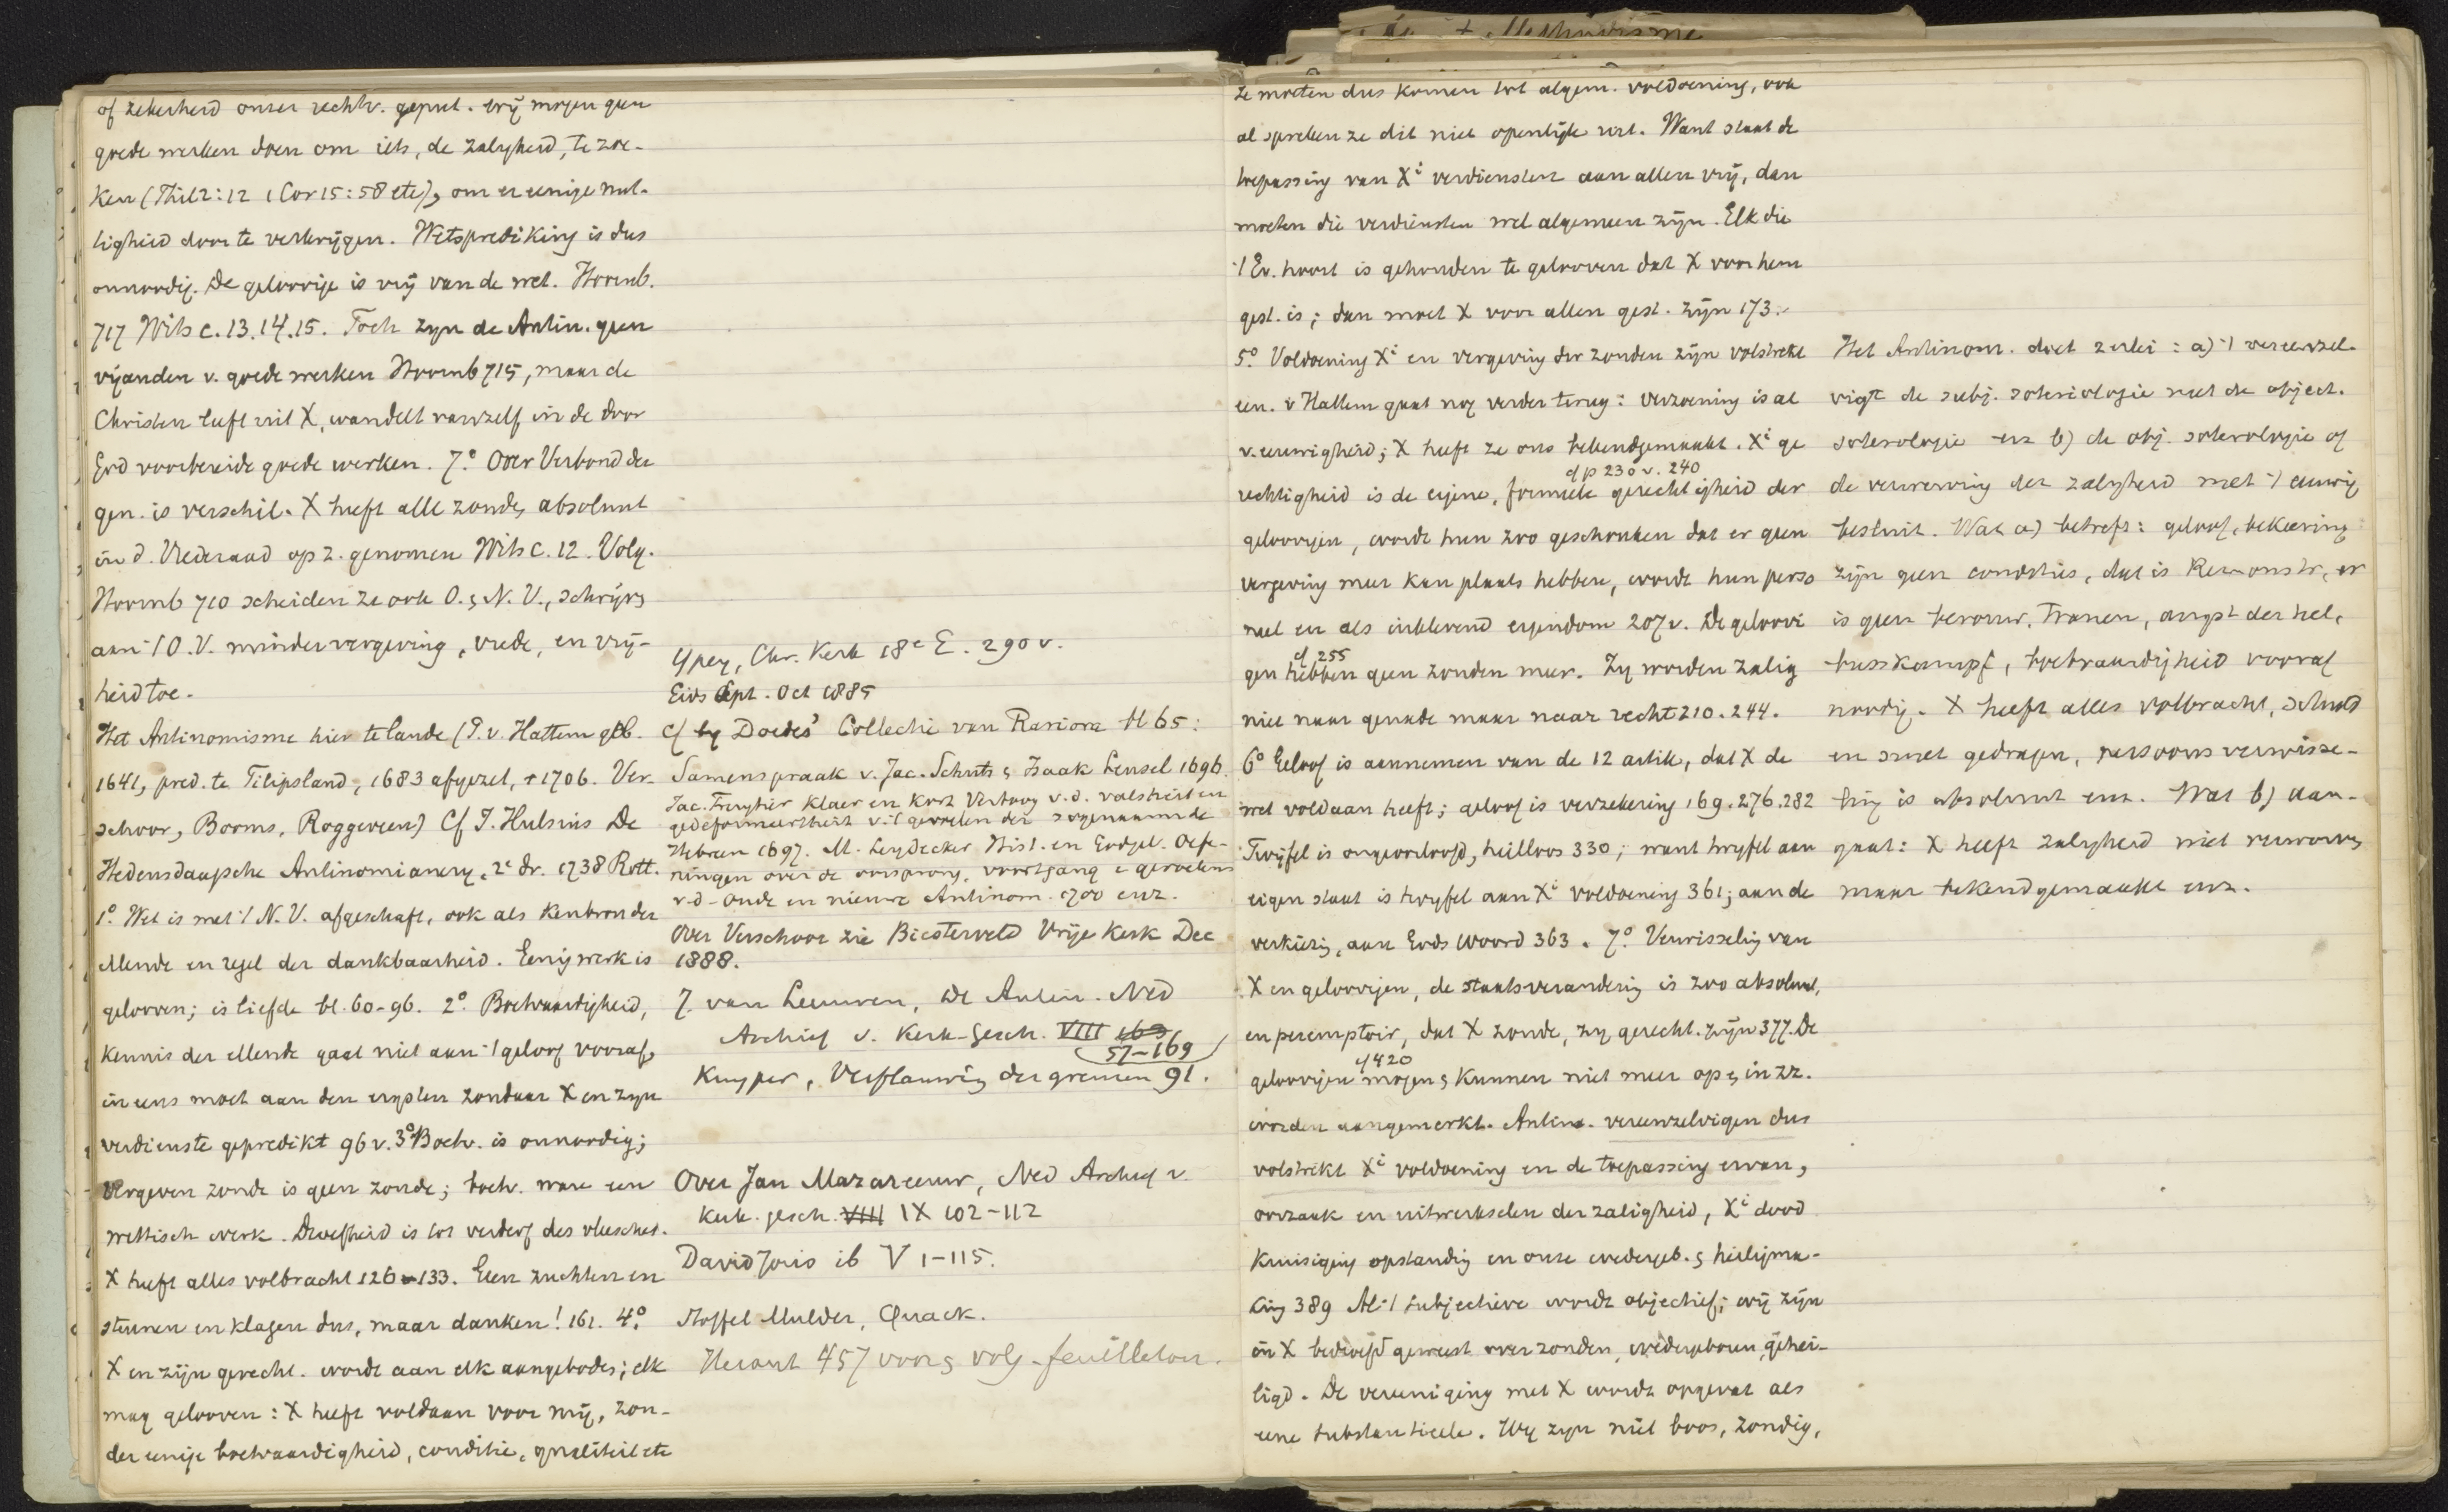 of zekerheid onzer rechtv. geput. Wij mogen geen
goede werken doen om iets, de zaligheid, te zoe-
ken (Phil 2:12 1 Cor 15:58 etc), om er eenige nut-
tigheid door te verkrijgen. Wetsprediking is dus
onnoodig. De geloovige is vrij van de wet. Hoornb.
717 Wits c. 13.14.15. Toch zijn de Antin. geen
vijanden v. goede werken Hoornb 715, maar de
Christen leeft uit X, wandelt vanzelf in de door
God voorbereide goede werken. 7.° Over Verbond der
gen. is verschil. X heeft alle zonde, absoluut
in d. Vrederaad op z. genomen Wits C. 12. Volg.
Hoornb 710 scheiden ze ook O. & N. V., schrijven
aan 't O.V. minder vergeving, vrede, en vrij-
heid toe.
Het Antinomisme hier te lande (P. v. Hattem geb.
1641, pred. te Filipsland, 1683 afgezet, † 1706. Ver-
schoor, Booms, Roggeveen) Cf J. Hulsius De
Hedensdaagsche Antinomianery, 2e dr. 1738 Rott.
1.° Wet is met 't N.V. afgeschaft, ook als kenbron der
ellende en regel der dankbaarheid. Eenig werk is
gelooven; is liefde bl. 60-96. 2.° Boetvaardigheid,
kennis der ellende gaat niet aan 't geloof vooraf,
in eens moet aan den ergsten zondaar X en zijn
verdienste gepredikt 96 v. 3° Boetv. is onnoodig;
Vergeven zonde is geen zonde; boetv. ware een
wettisch werk. Droefheid is tot verderf des vleesches.
X heeft alles volbracht 126-133. Geen zuchten en
steunen en klagen dus, maar danken! 161. 4.°
X en zijn gerecht. wordt aan elk aangeboden; elk
mag gelooven: X heeft voldaan voor mij, zon-
der eenige boetvaardigheid, conditie, qualiteit etc
Ypey, Chr. Kerk 18e E. 290 v.
Gids Sept. Oct 1885
Cf Doedes' Collectie van Rariora bl 65:
Samenspraak v. Jac. Schuts & Isaak Lensel 1696
Jac. Fruytier Klaer en Kort Vertoog v. d. valsheit en
gedeformeertheit v. 't gevoelen der sogenaamde
Hebreen 1697. M. Leydecker, Hist. en Godgel. Oefe-
ningen over de oorsprong, voortgang e gevoelens
v. d. oude en nieuwe Antinom. 1700 enz.
Over Verschoor zie Biesterveld Vrije Kerk Dec
1888.
J. van Leeuwen, De Antin. Ned
Archief v. Kerk-Gesch. VIII 169
57-169
Kuyper, Verflauwing der grenzen 91.
Over Jan Mazareeuw, Ned Archief v.
Kerk. gesch. VIII IX 102-112
David Joris ib V 1-115.
Stoffel Mulder, Quack.
Heraut 457 voor & volg - feuilleton.
Ze moeten dus komen tot algem. voldoening, ook
al spreken ze dit niet openlijk uit. Want staat de
toepassing van Xi verdiensten aan allen vrij, dan
moeten die verdiensten wel algemeen zijn. Elk die
't Ev. hoort is gehouden te gelooven dat X voor hem
gest. is; dan moet X voor allen gest. zijn 173.
5.° Voldoening Xi en vergeving der zonden zijn volstrekt
een. v Hattem gaat nog verder terug: verzoening is al
v. eeuwigheid; X heeft ze ons bekendgemaakt. Xi ge
cf p 230 v. 240
rechtigheid is de eigene, formeele gerechtigheid der
geloovigen, wordt hun zoo geschonken dat er geen
vergeving meer kan plaats hebben, wordt hun perso
neel en als inklevend eigendom 207 v. De geloovi
cf 255
gen hebben geen zonden meer. Zij worden zalig
niet naar genade maar naar recht 210. 244.
6° Geloof is aannemen van de 12 artik, dat X de
wet voldaan heeft; geloof is verzekering 169. 276. 282
Twijfel is ongeoorloofd, heilloos 330; want twijfel aan
eigen staat is twijfel aan Xi voldoening 361; aan de
verkiezing, aan Gods woord 363. 7.° Verwisseling van
X en geloovigen, de staatsverandering is zoo absoluut,
en peremptoir, dat X zonde, zij gerecht. zijn 377. De
cf 420
geloovigen mogen & kunnen niet meer op & in zz.
worden aangemerkt. Antin. vereenzelvigen dus
volstrekt Xi voldoening en de toepassing ervan,
oorzaak en uitwerkselen der zaligheid, Xi dood
kruisiging opstanding en onze wedergeb. & heiligma-
king 389 Al 't subjectieve wordt objectief; wij zijn
in X bedroefd geweest over zonden, wedergeboren, gehei-
ligd. De vereeniging met X wordt opgevat als
eene substantieele. Wij zijn niet boos, zondig,
Het Antinom. doet 2erlei: a) 't vereenzel-
vigt de subj. soteriologie met de object.
soterologie en b) de obj. soterologie of
de verwerving der zaligheid met 't eeuwig
besluit. Wat a) betreft: geloof, bekeering
zijn geen condities, dat is Remonstr., er
is geen berouw, tranen, angst der hel,
busskampf, boetvaardigheid vooraf
noodig. X heeft alles volbracht, schuld
en smet gedragen, persoonsverwisse-
ling is absoluut enz. Wat b) aan-
gaat: X heeft zaligheid niet verworven
maar bekendgemaakt enz.